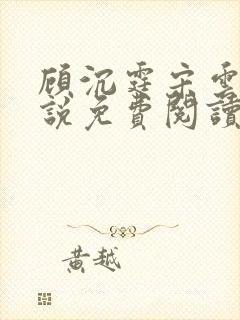 顾沉霆宋雲
說免費閱讀
黃越